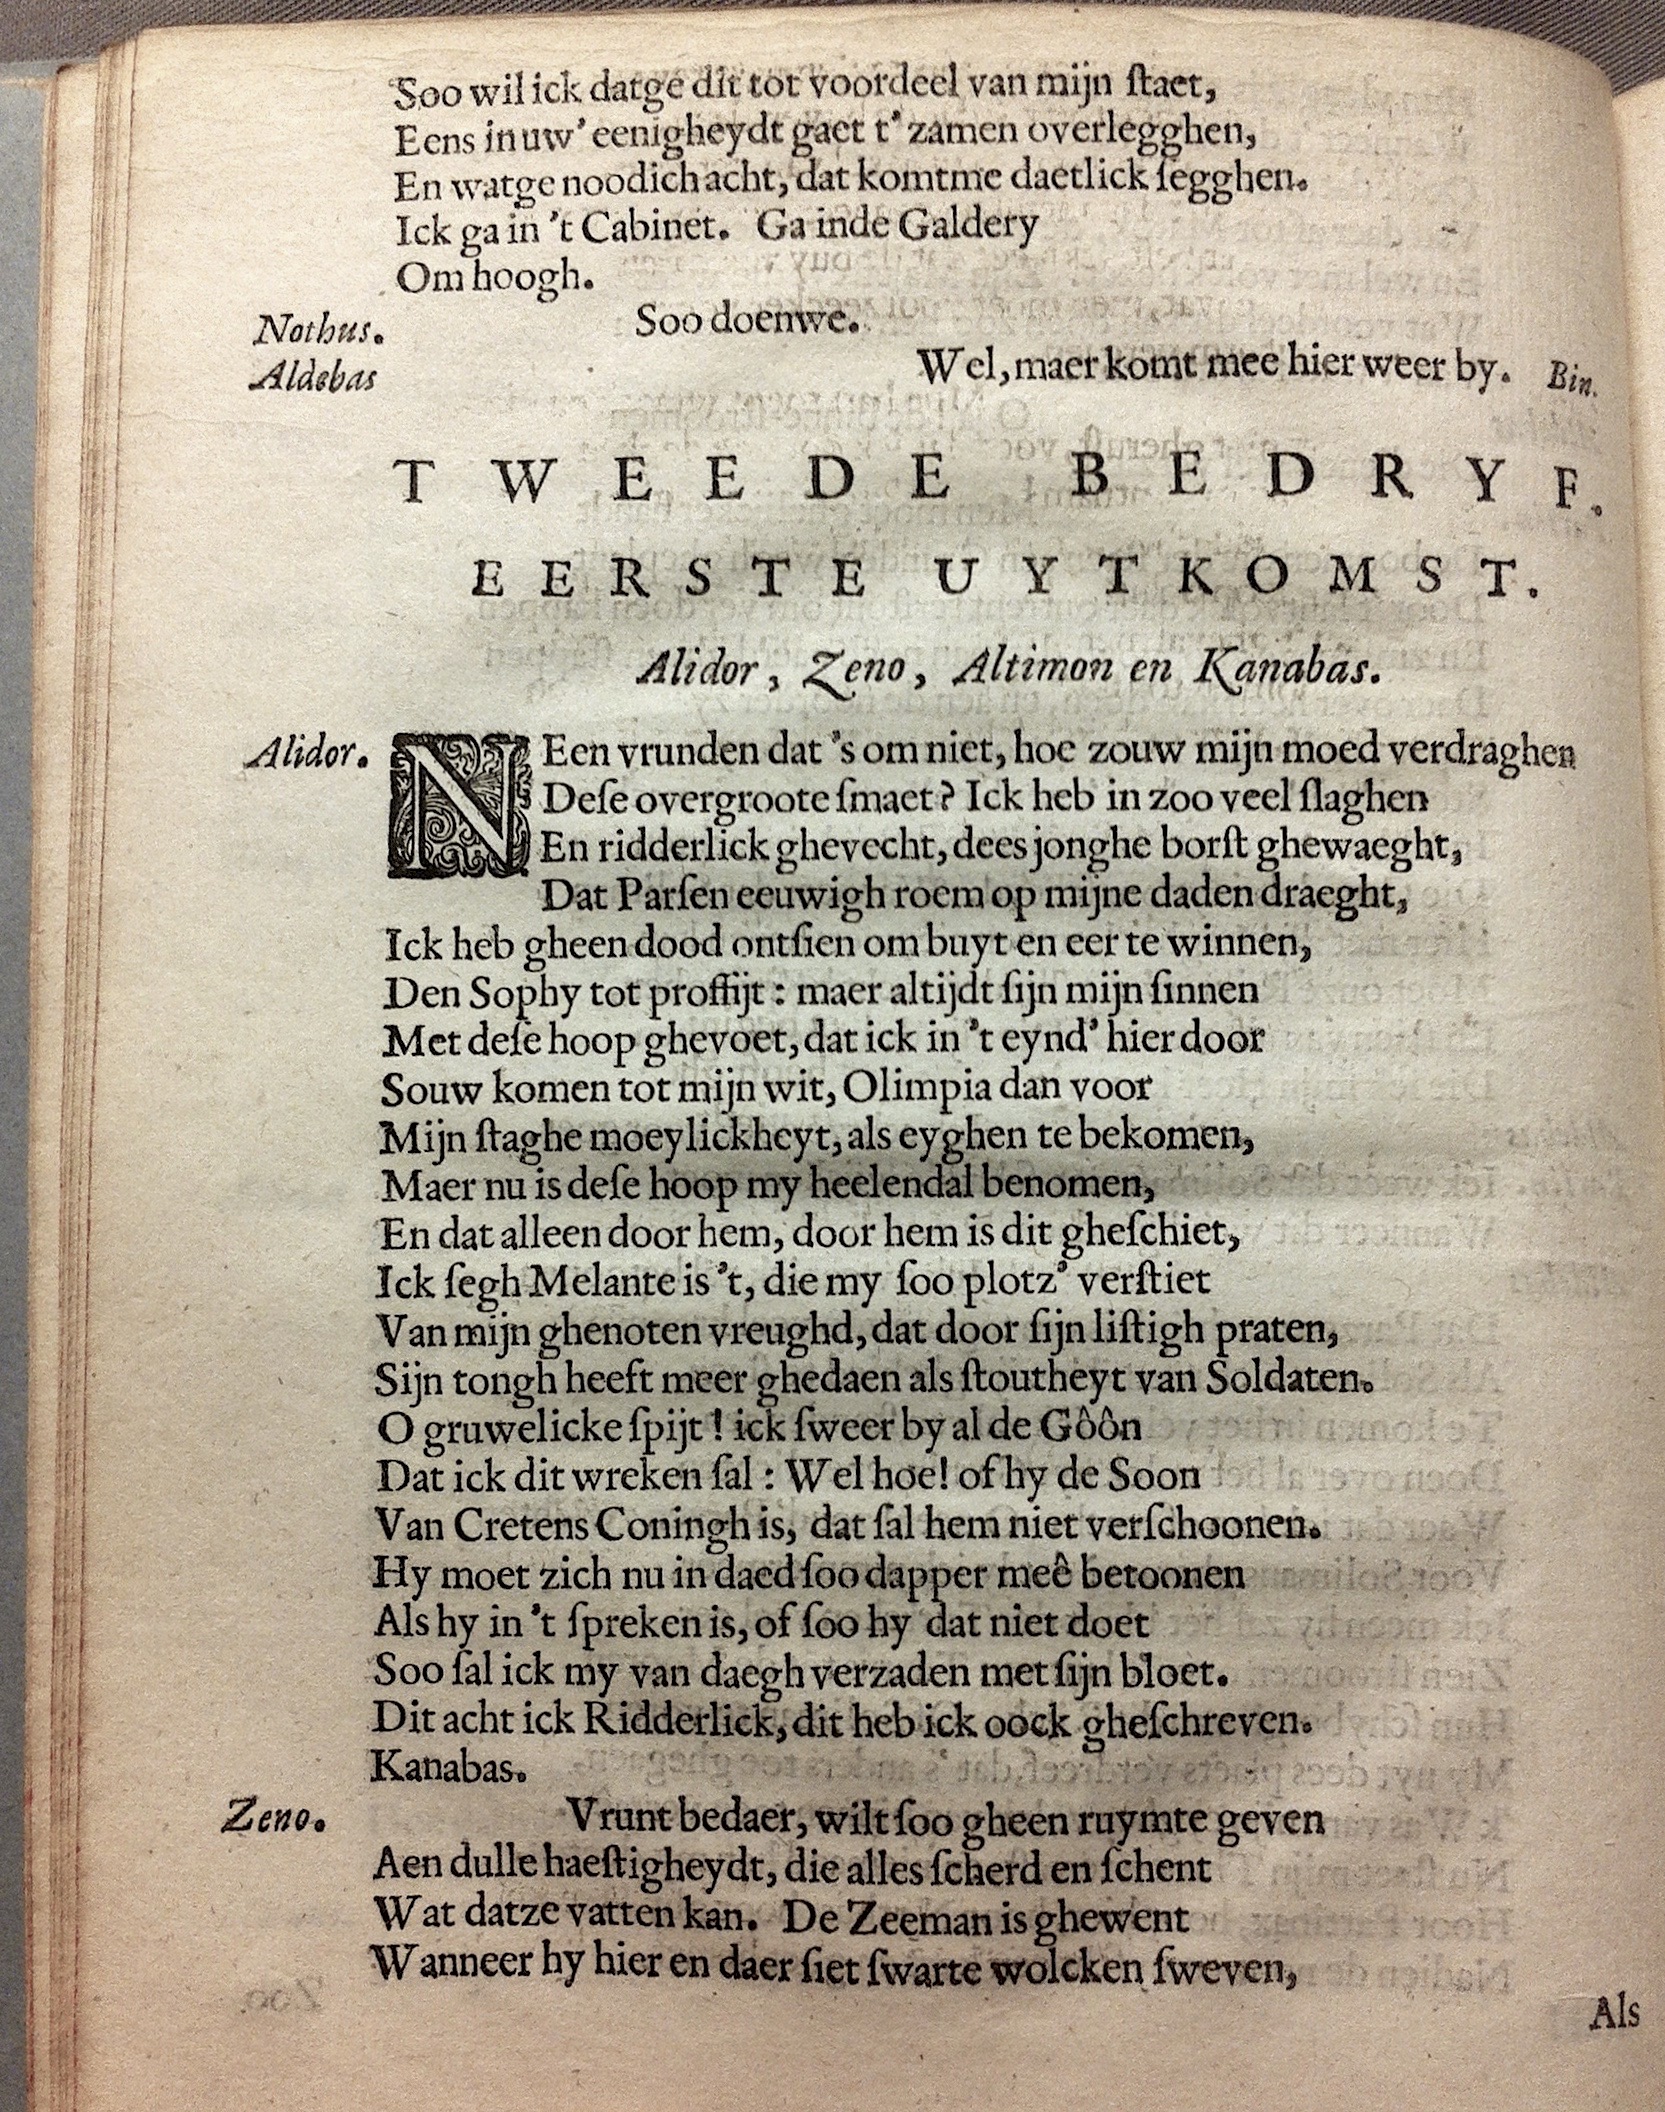 Soo wil ick datge dit tot voordeel van mijn ſtaet,
Eens in uw' eenigheydt gaet t' zamen overlegghen,
En watge noodich acht, dat komtme daetlick ſegghen.
Ick ga in 't Cabinet. Ga inde Galdery
Om hoogh.
Nothus. Soo doenwe.
Aldebas Wel, maer komt mee hier weer by. Bin.
TWEEDE BEDRYF.
EERSTE UYTKOMST.
Alidor, Zeno, Altimon en Kanabas.
Alidor. NEen vrunden dat 's om niet, hoe zouw mijn moed verdraghen
Deſe overgroote ſmaet? Ick heb in zoo veel ſlaghen
En ridderlick ghevecht, dees jonghe borſt ghewaeght,
Dat Parſen eeuwigh roem op mijne daden draeght,
Ick heb gheen dood ontſien om buyt en eer te winnen,
Den Sophy tot proffijt: maer altijdt ſijn mijn ſinnen
Met deſe hoop ghevoet, dat ick in 't eynd' hier door
Souw komen tot mijn wit, Olimpia dan voor
Mijn ſtaghe moeylickheyt, als eyghen te bekomen,
Maer nu is deſe hoop my heelendal benomen,
En dat alleen door hem, door hem is dit gheſchiet,
Ick ſegh Melante is 't, die my ſoo plotz' verſtiet
Van mijn ghenoten vreughd, dat door ſijn liſtigh praten,
Sijn tongh heeft meer ghedaen als ſtoutheyt van Soldaten.
O gruwelicke ſpijt! ick ſweer by al de Gôôn
Dat ick dit wreken ſal: Wel hoe! of hy de Soon
Van Cretens Coningh is, dat ſal hem niet verſchoonen.
Hy moet zich nu in daed ſoo dapper meê betoonen
Als hy in 't ſpreken is, of ſoo hy dat niet doet
Soo ſal ick my van daegh verzaden met ſijn bloet.
Dit acht ick Ridderlick, dit heb ick oock gheſchreven.
Kanabas.
Zeno. Vrunt bedaer, wilt ſoo gheen ruymte geven
Aen dulle haeſtigheydt, die alles ſcherd en ſchent
Wat datze vatten kan. De Zeeman is ghewent
Wanneer hy hier en daer ſiet ſwarte wolcken ſweven,
Als